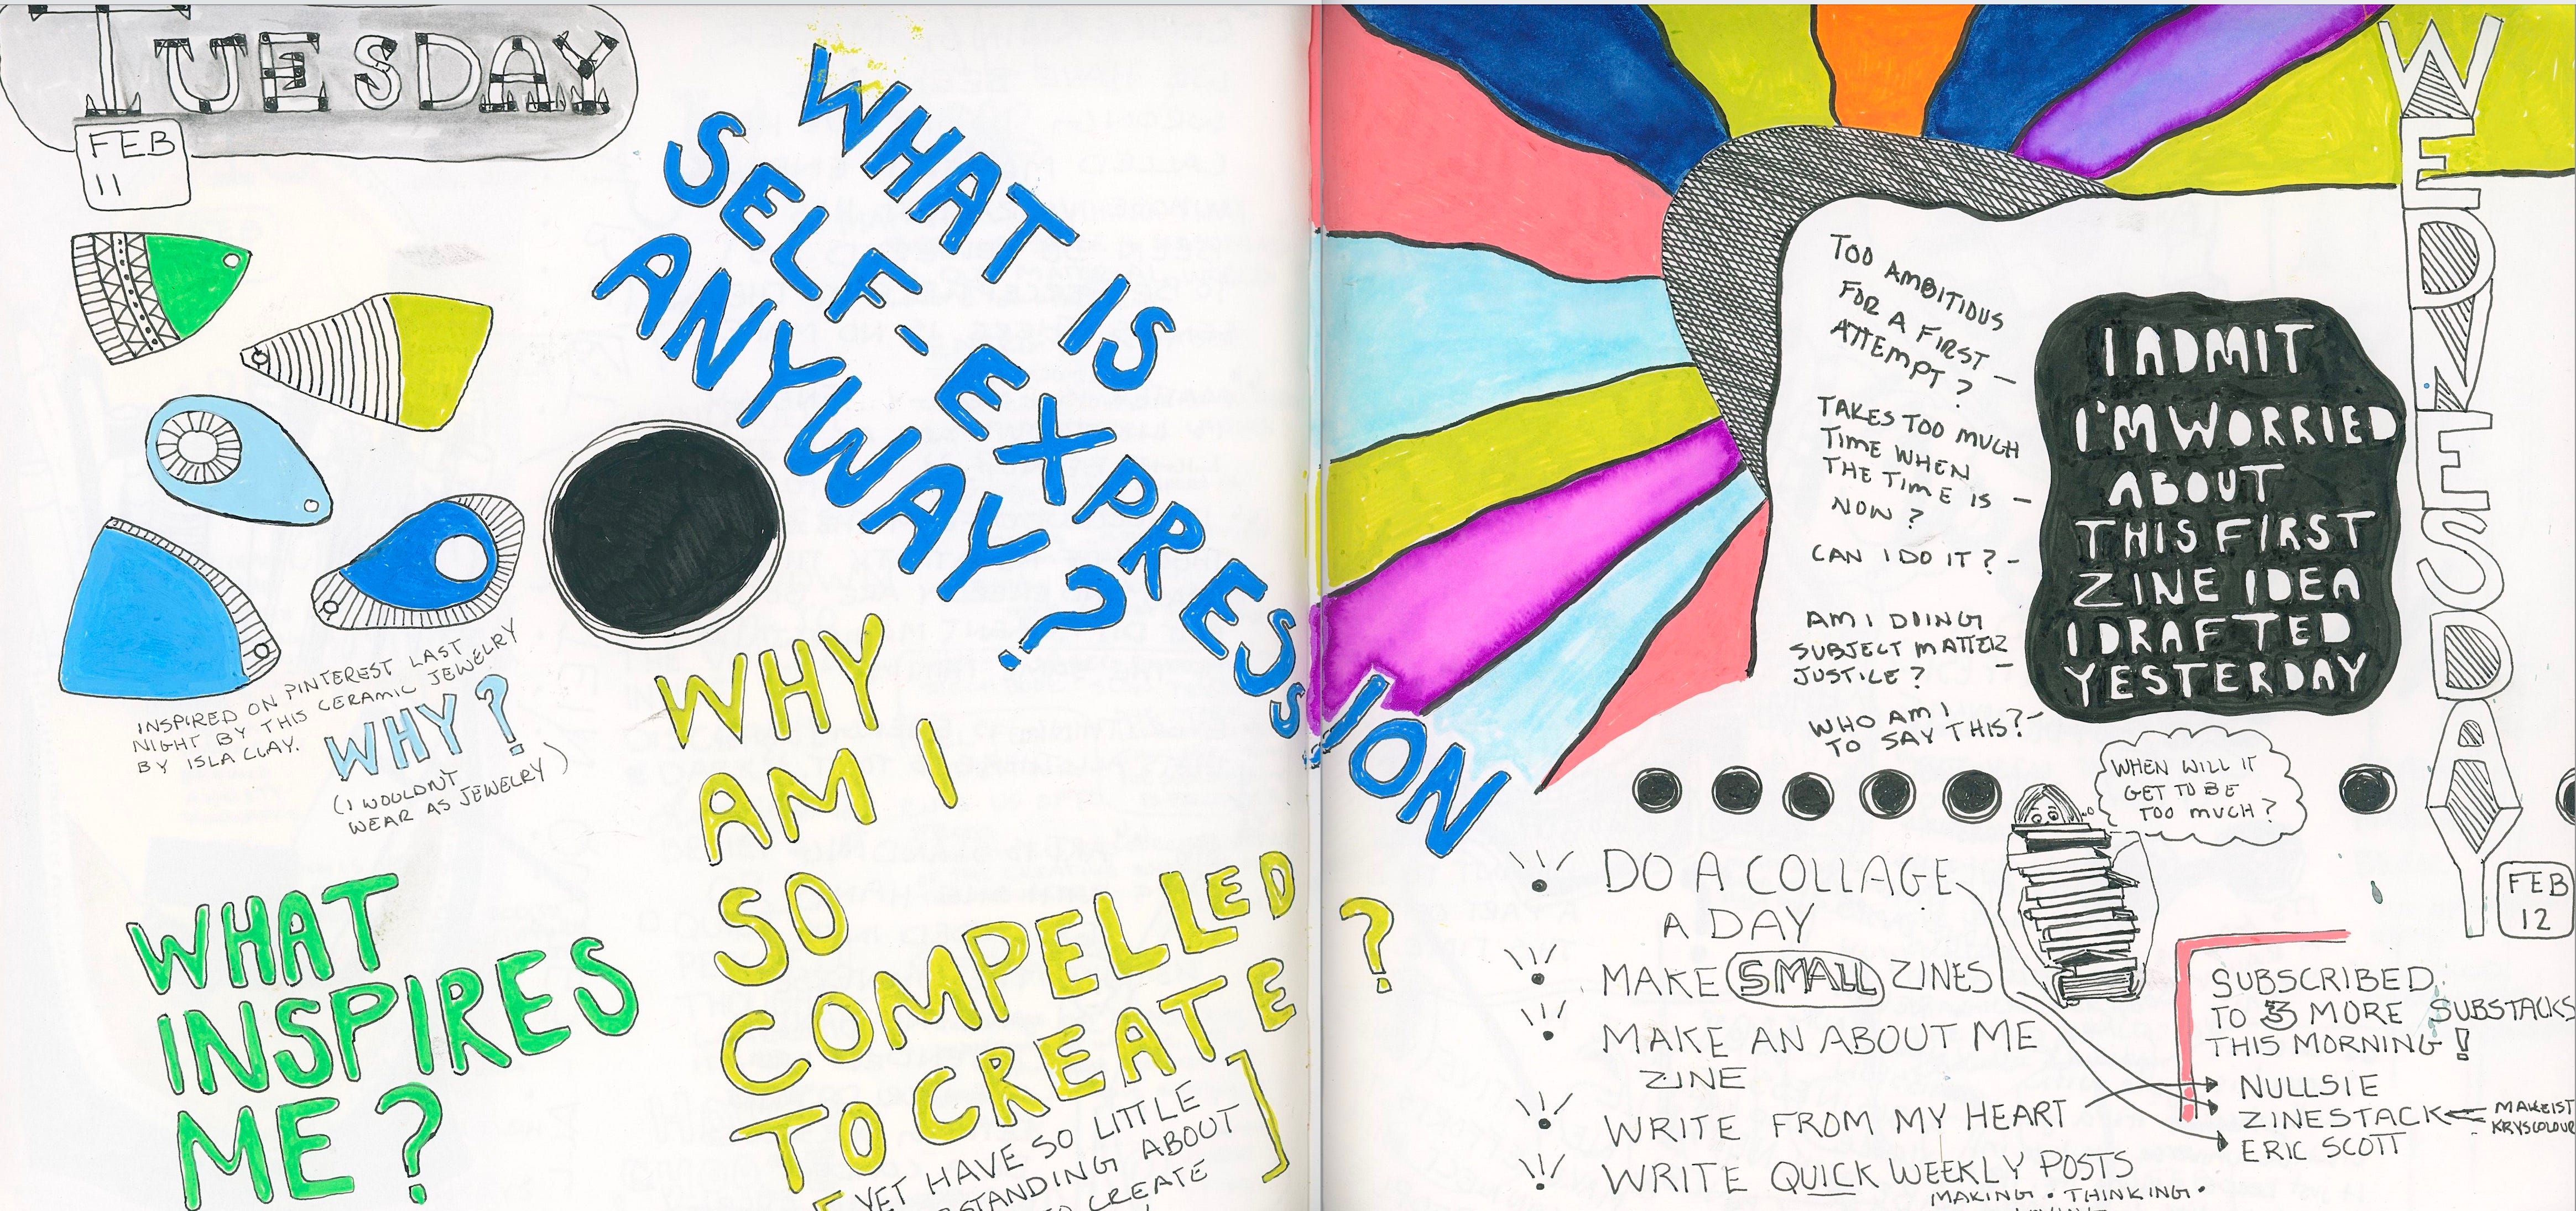 TUESDAY
FEB
11
WHAT IS
SELF-EXPRESSION
ANYWAY?
INSPIRED ON PINTEREST LAST
NIGHT BY THIS CERAMIC JEWELRY
BY ISLA CLAY.
WHY?
(I WOULDN'T
WEAR AS JEWELRY)
WHAT
INSPIRES
ME?
WHY
AM I
SO
COMPELLED
TO CREATE?
[YET HAVE SO LITTLE
STANDING ABOUT
CREATE]
WEDNESDAY
FEB
12
TOO AMBITIOUS
FOR A FIRST -
ATTEMPT?
TAKES TOO MUCH
TIME WHEN
THE TIME IS -
NOW?
CAN I DO IT? -
AM I DOING
SUBJECT MATTER -
JUSTICE?
WHO AM I
TO SAY THIS? -
I ADMIT
I'M WORRIED
ABOUT
THIS FIRST
ZINE IDEA
I DRAFTED
YESTERDAY
WHEN WILL IT
GET TO BE
TOO MUCH?
DO A COLLAGE
A DAY
MAKE SMALL ZINES
MAKE AN ABOUT ME
ZINE
WRITE FROM MY HEART
WRITE QUICK WEEKLY POSTS
MAKING • THINKING •
SUBSCRIBED
TO 3 MORE SUBSTACKS
THIS MORNING!
NULLSIE
ZINESTACK
MAKEIST
KRYSCOLOUR
ERIC SCOTT